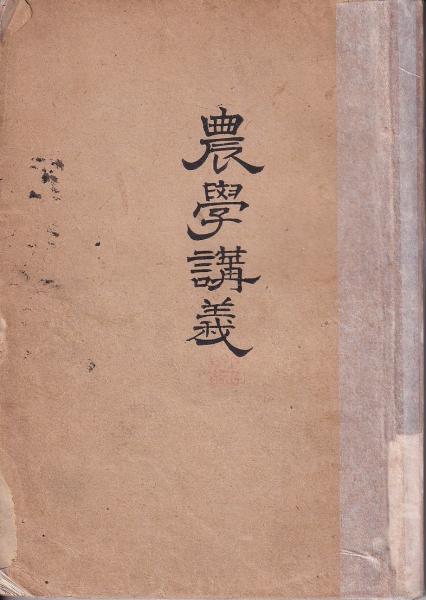 農學講義